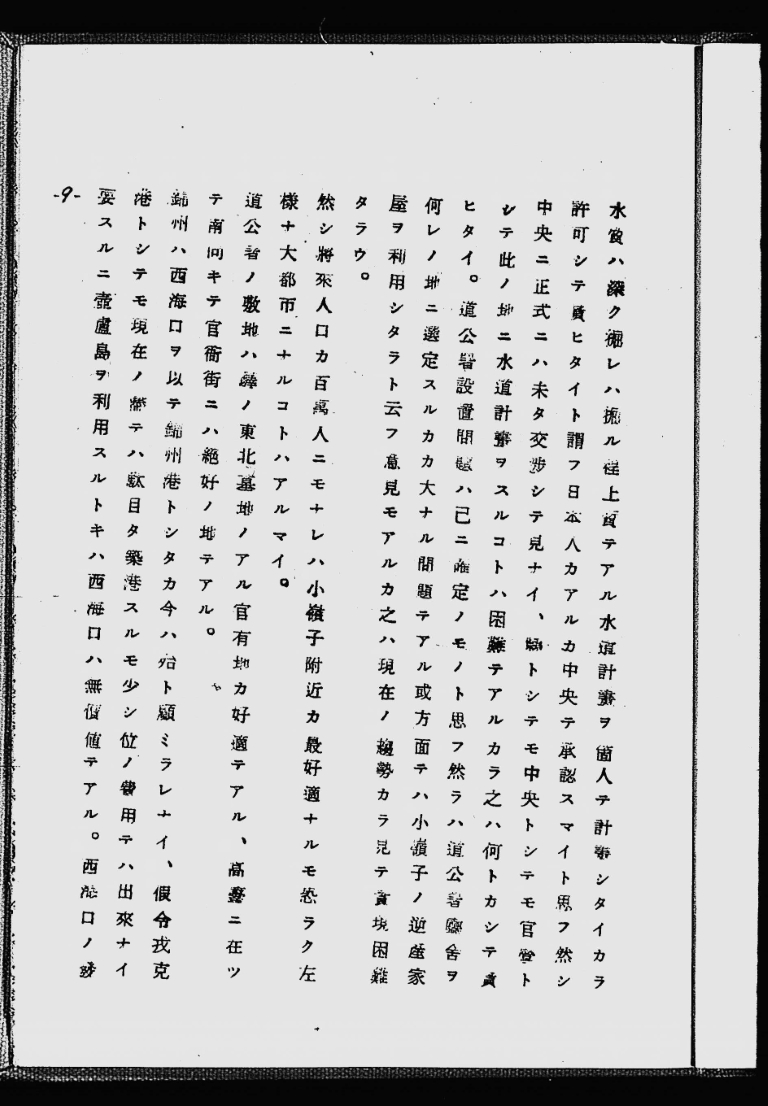 水質ハ深ク掘レハ掘ル程上質テアル水道計畫ヲ箇人テ計畫シタイカラ
許可シテ貰ヒタイト謂フ日本人カアルカ中央テ承認スマイト思フ然シ
中央ニ正式ニハ未タ交渉シテ見ナイ、縣トシテモ中央トシテモ官營ト
シテ此ノ地ニ水道計畫ヲスルコトハ困難テアルカラ之ハ何トカシテ貰
ヒタイ。道公署設置問題ハ已ニ確定ノモノト思フ然ラハ道公署廳舍ヲ
何レノ地ニ選定スルカカ大ナル問題テアル或方面テハ小嶺子ノ逆產家
屋ヲ利用シタラト云フ意見モアルカ之ハ現在ノ趨勢カラ見テ實現困難
タラウ。
然シ將來人口カ百萬人ニモナレハ小嶺子附近カ最好適ナルモ恐ラク左
樣ナ大都市ニナルコトハアルマイ。
道公署ノ敷地ハ縣ノ東北墓地ノアル官有地カ好適テアル、高臺ニ在ツ
テ南向キテ官衙街ニハ絕好ノ地テアル。
錦州ハ西海口ヲ以テ錦州港トシタカ今ハ殆ト顧ミラレナイ、假令戎克
港トシテモ現在ノ儘テハ駄目タ築港スルモ少シ位ノ費用テハ出來ナイ
要スルニ壺盧島ヲ利用スルトキハ西海口ハ無價値テアル。西海口ノ
-9-